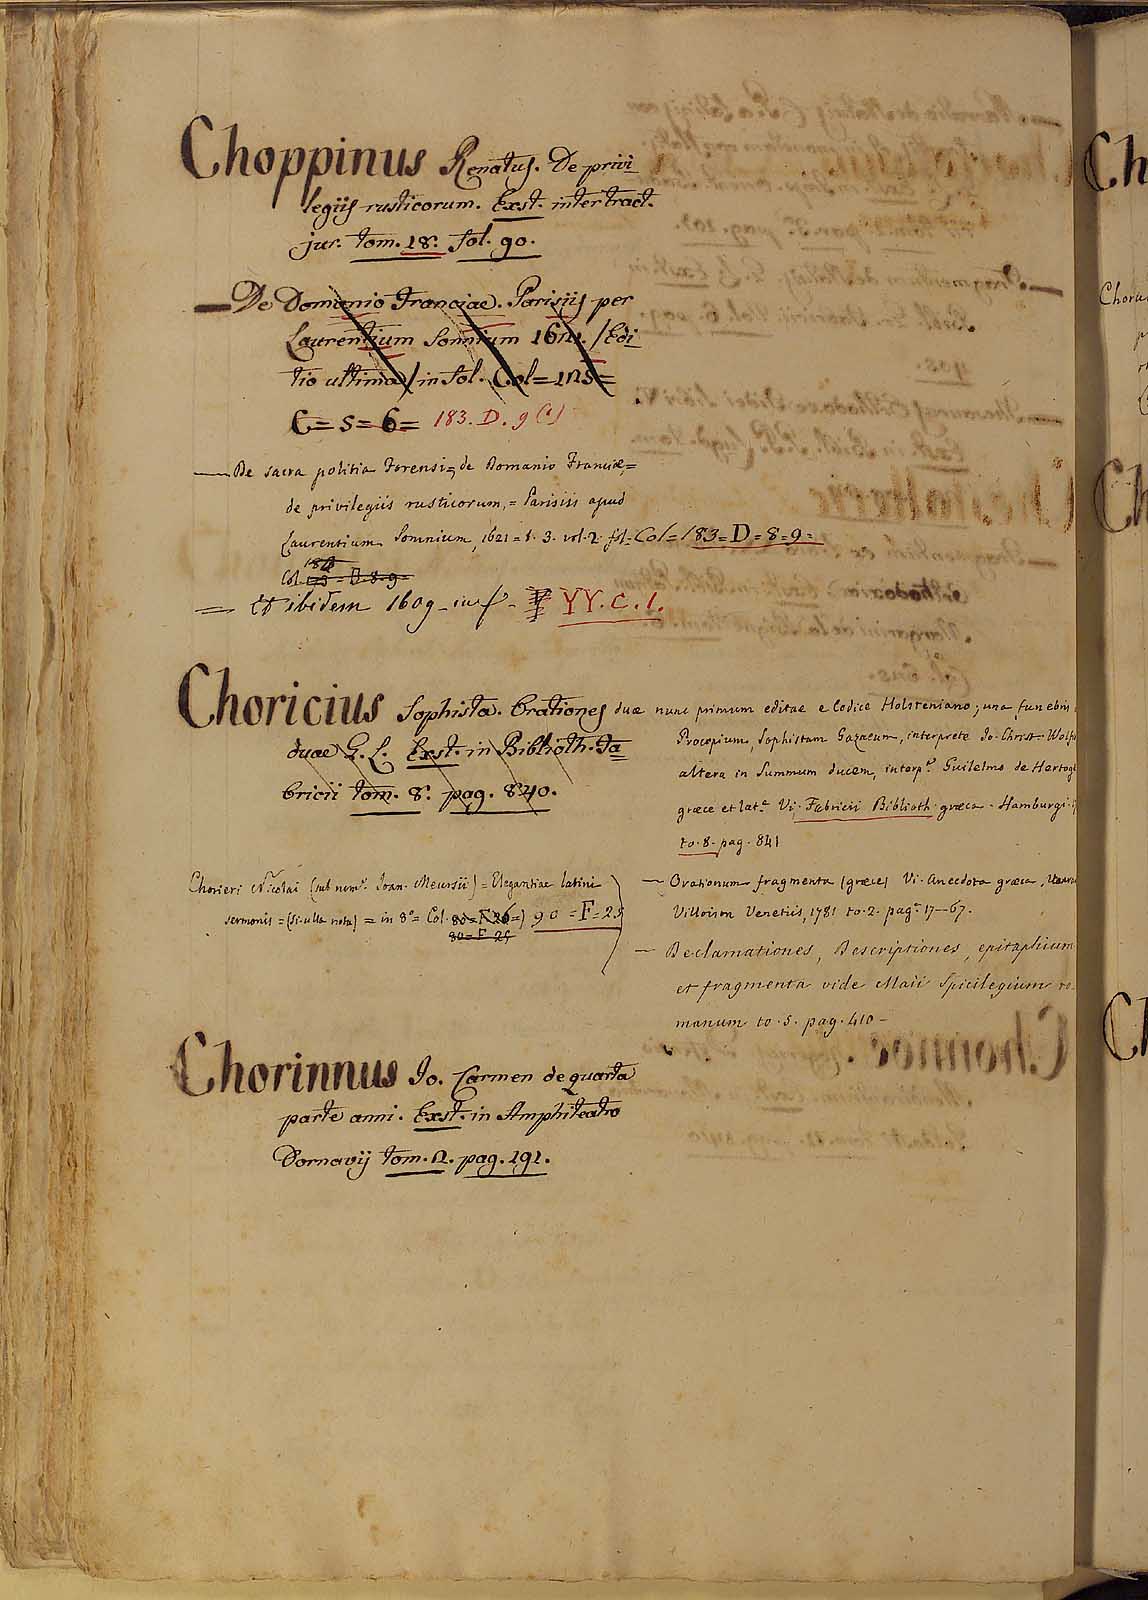 Choppinus Renatus. De privi
legijs rusticorum. Exst. inter tract.
jur. tom. 18. fol. 90.
— De Domanio Franciae. Parisijs per
Laurentium Sonnium 1621. (Edi
tio ultima) in fol. Col = 125 =
C = 5 = 6 = 183. D. 9 (1)
— De sacra politia Forensi =, de Domanio Franciæ, =
de privilegiis rusticorum, = Parisiis apud
Laurentium Somnium, 1621 = t. 3. vol. 2. fol = Col = 183 = D = 8 = 9 =
183
Col. 175 = D. 8. 9 =
= Et ibidem 1609 in f. YY. C. 1.
Choricius Sophista. Orationes
duae G. L. Exst. in Biblioth. Fa
bricii tom. 8. pag. 840.
duæ nunc primum editae e Codice Holsteniano; una funebris
Procopium, Sophistam Gazaeum, interprete Jo. Christ. Wolfi
altera in Summum ducem, interp.e Guilelmo de Hertog
græce et lat.e Vi. Fabricii Biblioth. græca. Hamburgi
to. 8. pag. 841
— Orationum fragmenta (græce) Vi. Anecdota græca,
Villoison Venetiis, 1781 to. 2. pag. 17—67.
— Declamationes, Descriptiones, epitaphium
et fragmenta vide Maii Spicilegium ro
manum to. 5. pag. 410 —
Chorieri Nicolai (sub nom.e Joan. Meursii) = Elegantiae latini
sermonis = (si. ulla nota) = in 8.° = Col. 80 = F 26 =) 90 = F = 25
80 = F 25
Chorinnus Jo. Carmen de quarta
parte anni. Exst. in Amphiteatro
Dornavij tom. 2. pag. 191.
Ch
Choru
Ch
Ch